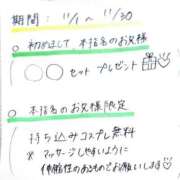 期間: 11/1 〜 11/30
○ 初めまして、本指名のお客様
○○セット プレゼント
○ 本指名のお客様限定
持ち込みコスプレ無料
※ マッサージしやすいように
伸縮性のあるものでお願いします